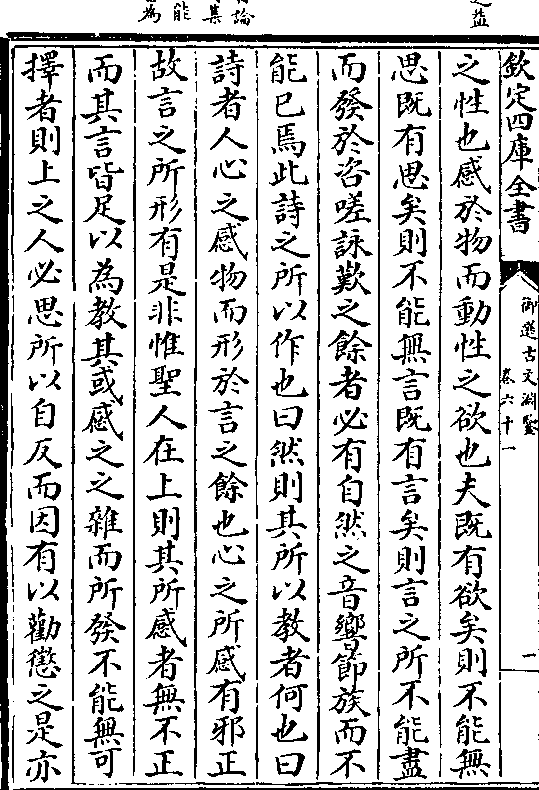 欽定四庫全書
御選古文淵鑒
卷六十一
一
之性也感於物而動性之欲也夫既有欲矣則不能無
思既有思矣則不能無言既有言矣則言之所不能盡
而發於咨嗟詠歎之餘者必有自然之音響節族而不
能已焉此詩之所以作也曰然則其所以教者何也曰
詩者人心之感物而形於言之餘也心之所感有邪正
故言之所形有是非惟聖人在上則其所感者無不正
而其言皆足以為教其或感之之雜而所發不能無可
擇者則上之人必思所以自反而因有以勸懲之是亦
益
論
其
能
為